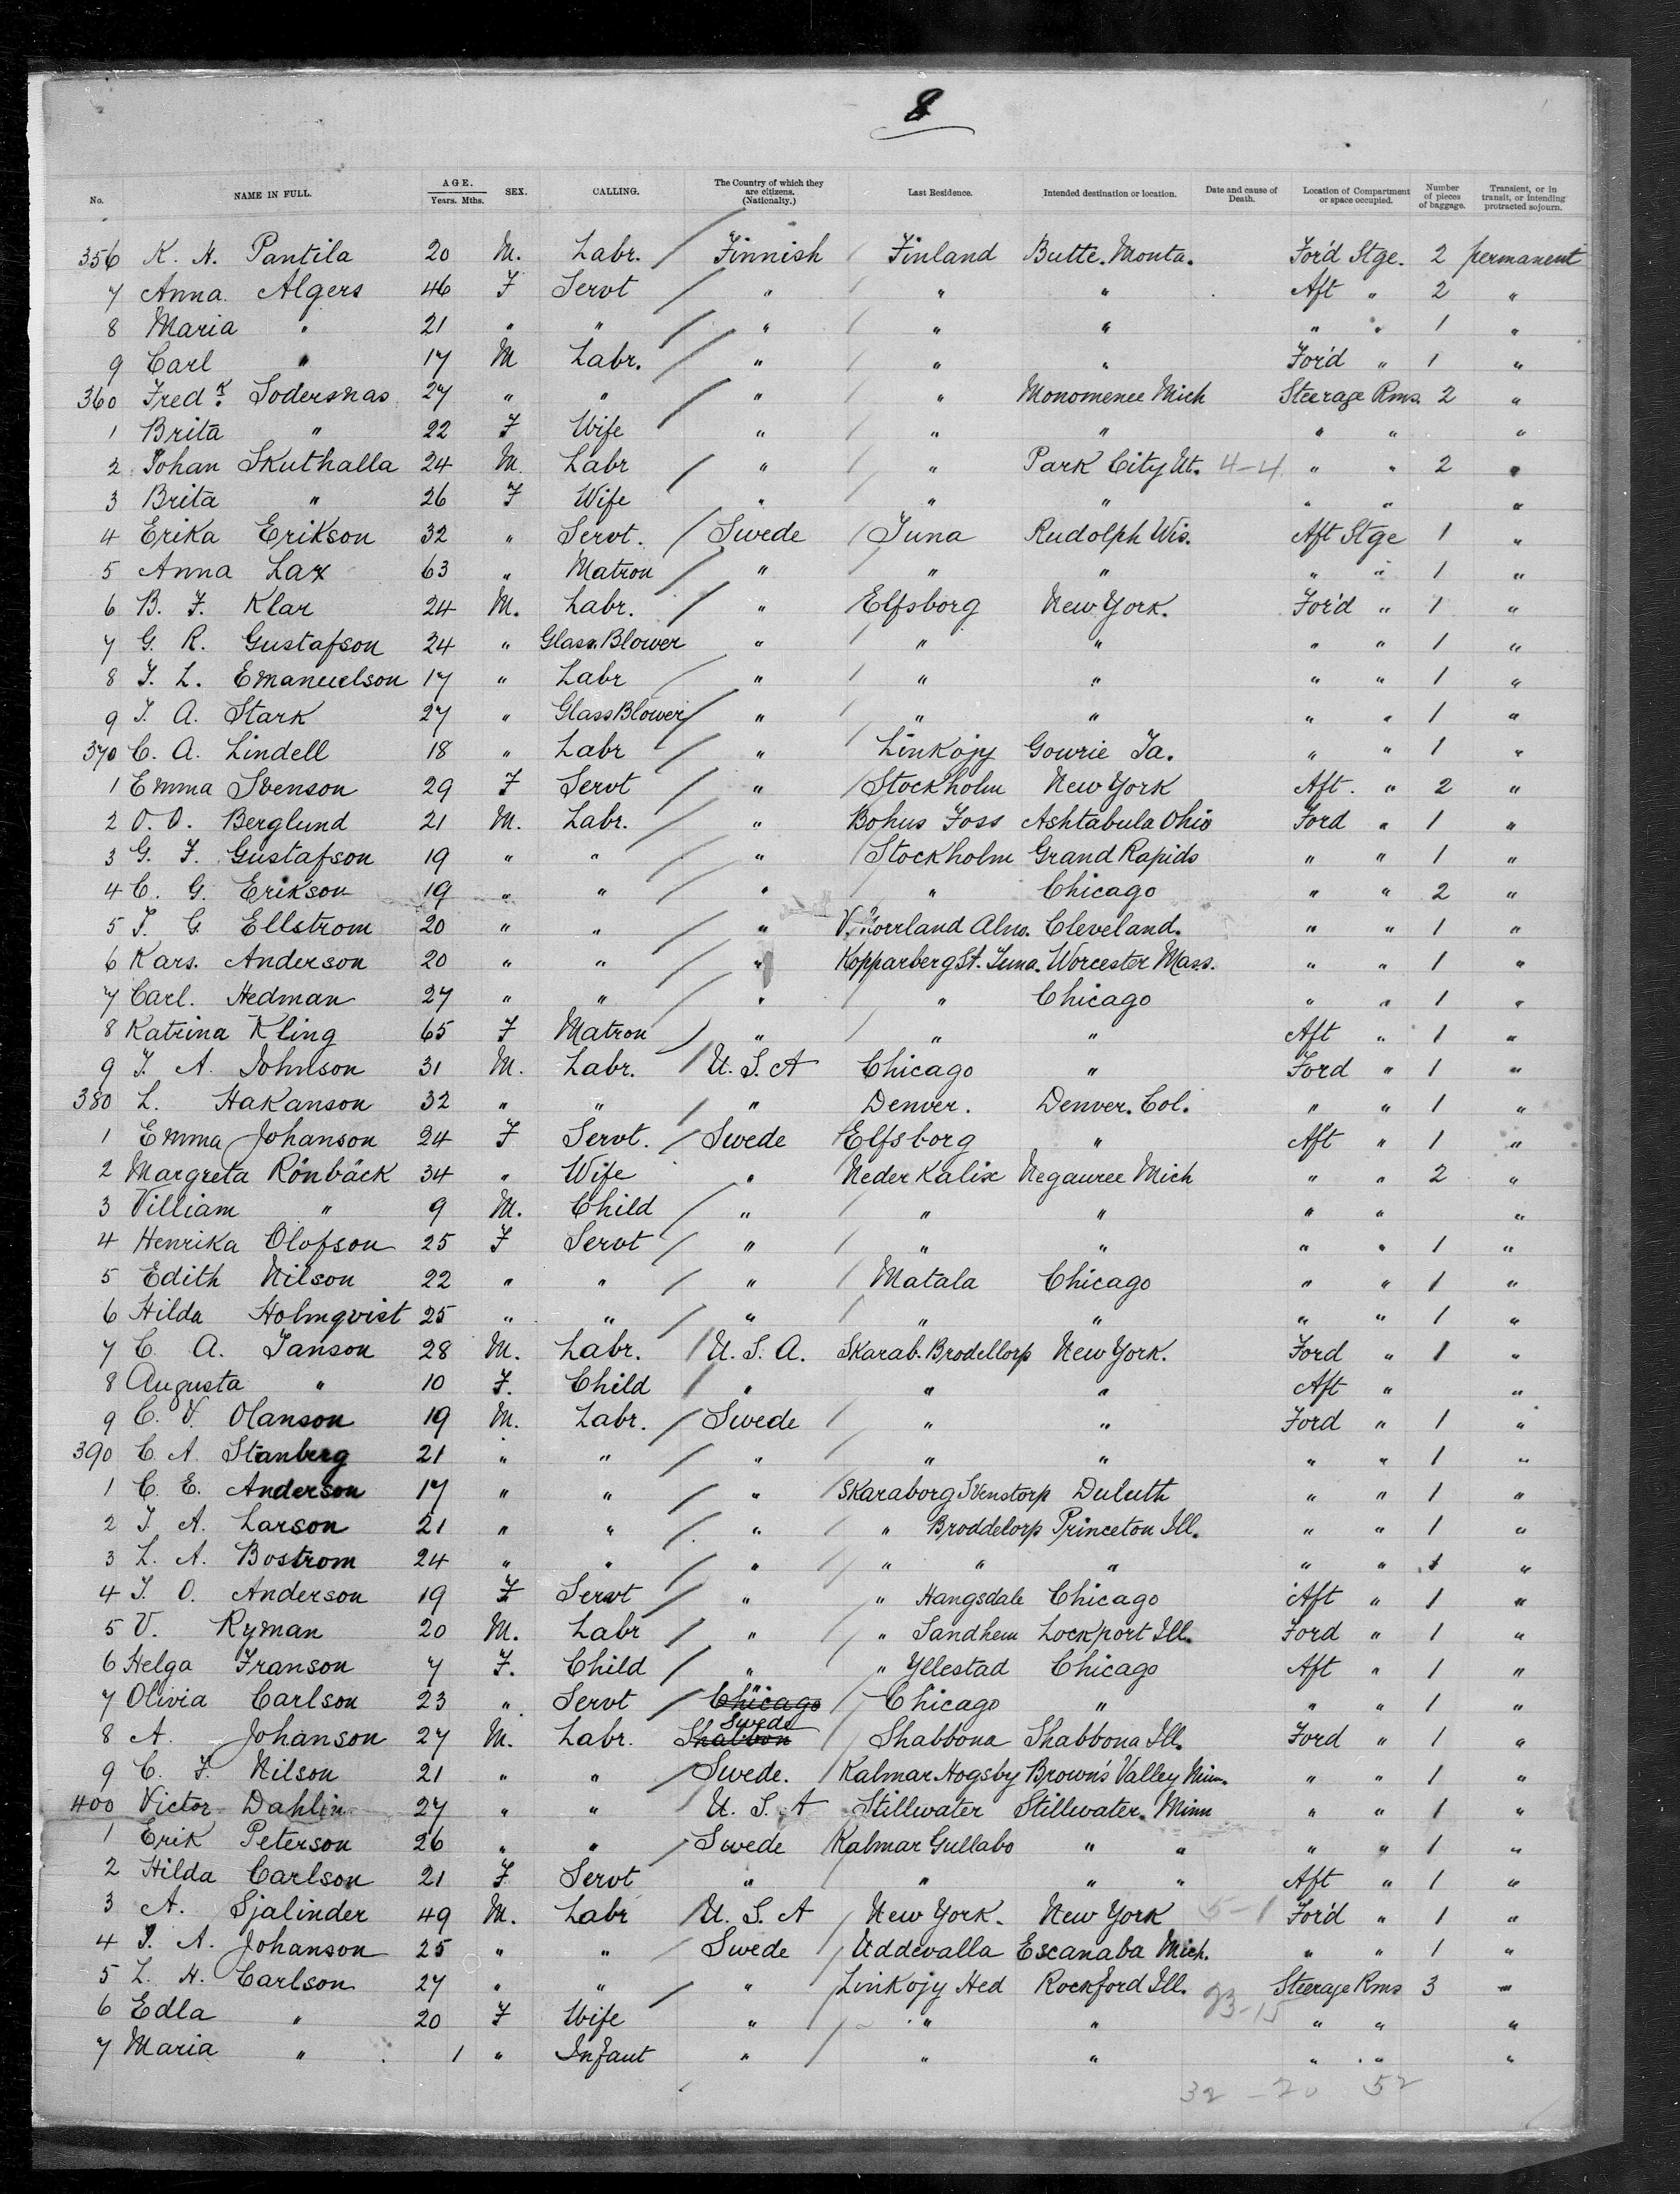 8
No. NAME IN FULL. AGE. Years. Mths. SEX. CALLING. The Country of which they are citizens. (Nationalty.) Last Residence. Intended destination or location. Date and cause of Death. Location of Compartment or space occupied. Number of pieces of baggage. Transient, or in transit, or intending protracted sojourn.
356 K. H. Pantila 20 M. Labr. Finnish Finland Butte. Monta. For'd Stge. 2 permanent
7 Anna Algers 46 F Servt " " " Aft " 2 "
8 Maria " 21 " " " " " " " 1 "
9 Carl " 17 M Labr. " " " For'd " 1 "
360 Fredk. Sodersnas 27 " " " " Monomenee Mich Steerage Rms. 2 "
1 Brita " 22 F Wife " " " " " "
2 Johan Skuthalla 24 M. Labr " " Park City Ut. 4-4 " " 2 "
3 Brita " 26 F Wife " " " " " "
4 Erika Erikson 32 " Servt. Swede Tuna Rudolph Wis. Aft Stge 1 "
5 Anna Lax 63 " Matron " " " " " 1 "
6 B. F. Klar 24 M. Labr. " Elfsborg New York. For'd " 1 "
7 G. R. Gustafson 24 " Glass Blower " " " " " 1 "
8 J. L. Emanuelson 17 " Labr " " " " " 1 "
9 J. A. Stark 27 " Glass Blower " " " " " 1 "
370 C. A. Lindell 18 " Labr " Linkojy Gowrie Ia. " " 1 "
1 Emma Svenson 29 F Servt " Stockholm New York Aft. " 2 "
2 O. O. Berglund 21 M. Labr. " Bohus Foss Ashtabula Ohio Ford " 1 "
3 G. F. Gustafson 19 " " " Stockholm Grand Rapids " " 1 "
4 C. G. Erikson 19 " " " " Chicago " " 2 "
5 J. G. Ellstrom 20 " " " V. Norrland Alno. Cleveland. " " 1 "
6 Kars. Anderson 20 " " " Kopparberg St. Tuna. Worcester Mass. " " 1 "
7 Carl. Hedman 27 " " " " Chicago " " 1 "
8 Katrina Kling 65 F Matron " " " Aft " 1 "
9 J. A. Johnson 31 M. Labr. U. S. A Chicago " Ford " 1 "
380 L. Hakanson 32 " " " Denver. Denver. Col. " " 1 "
1 Emma Johanson 24 F Servt. Swede Elfsborg " Aft " 1 "
2 Margreta Rönbäck 34 " Wife " Neder Kalix Negauree Mich " " 2 "
3 Villiam " 9 M. Child " " " " " "
4 Henrika Olofson 25 F Servt " " " " " 1 "
5 Edith Nilson 22 " " " Matala Chicago " " 1 "
6 Hilda Holmqvist 25 " " " " " " " 1 "
7 C. A. Janson 28 M. Labr. U. S. A. Skarab. Brodellorp New York. Ford " 1 "
8 Augusta " 10 F. Child " " " Aft " "
9 C. V. Olanson 19 M. Labr. Swede " " Ford " 1 "
390 C. A. Stanberg 21 " " " " " " " 1 "
1 C. E. Anderson 17 " " " Skaraborg Svenstorp Duluth " " 1 "
2 J. A. Larson 21 " " " " Broddetorp Princeton Ill. " " 1 "
3 L. A. Bostrom 24 " " " " " " " " 1 "
4 J. O. Anderson 19 F Servt " " Hangsdale Chicago Aft " 1 "
5 V. Ryman 20 M. Labr " " Sandhem Lockport Ill. Ford " 1 "
6 Helga Franson 7 F. Child " " Yllestad Chicago Aft " 1 "
7 Olivia Carlson 23 " Servt Chicago " Chicago " " " 1 "
8 A. Johanson 27 M. Labr. Shabbon Swede Shabbona Shabbona Ill. Ford " 1 "
9 C. F. Nilson 21 " " Swede. Kalmar Hogsby Brown's Valley Minn. " " 1 "
400 Victor Dahlin 27 " " U. S. A Stillwater Stillwater. Minn " " 1 "
1 Erik Peterson 26 " " Swede Kalmar Gullabo " " " " 1 "
2 Hilda Carlson 21 F Servt " " " " Aft " 1 "
3 A. Sjalinder 49 M. Labr U. S. A New York. New York 5-1 For'd " 1 "
4 J. A. Johanson 25 " " Swede Uddevalla Escanaba Mich. " " 1 "
5 L. H. Carlson 27 " " " Linkojy Hed Rockford Ill. 23-15 Steerage Rms 3 "
6 Edla " 20 F Wife " " " " " "
7 Maria " 1 " Infant " " " " " "
32 - 20 52